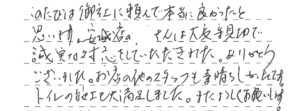 このたびは御社に頼んで本当に良かったと
思います。安城店の さんは大変親切で
誠実な対応をしていただきました。ありがとう
ございました。お店の他のスタッフも素晴らしかったです
トイレの方も大満足しました。またよろしくお願いします。